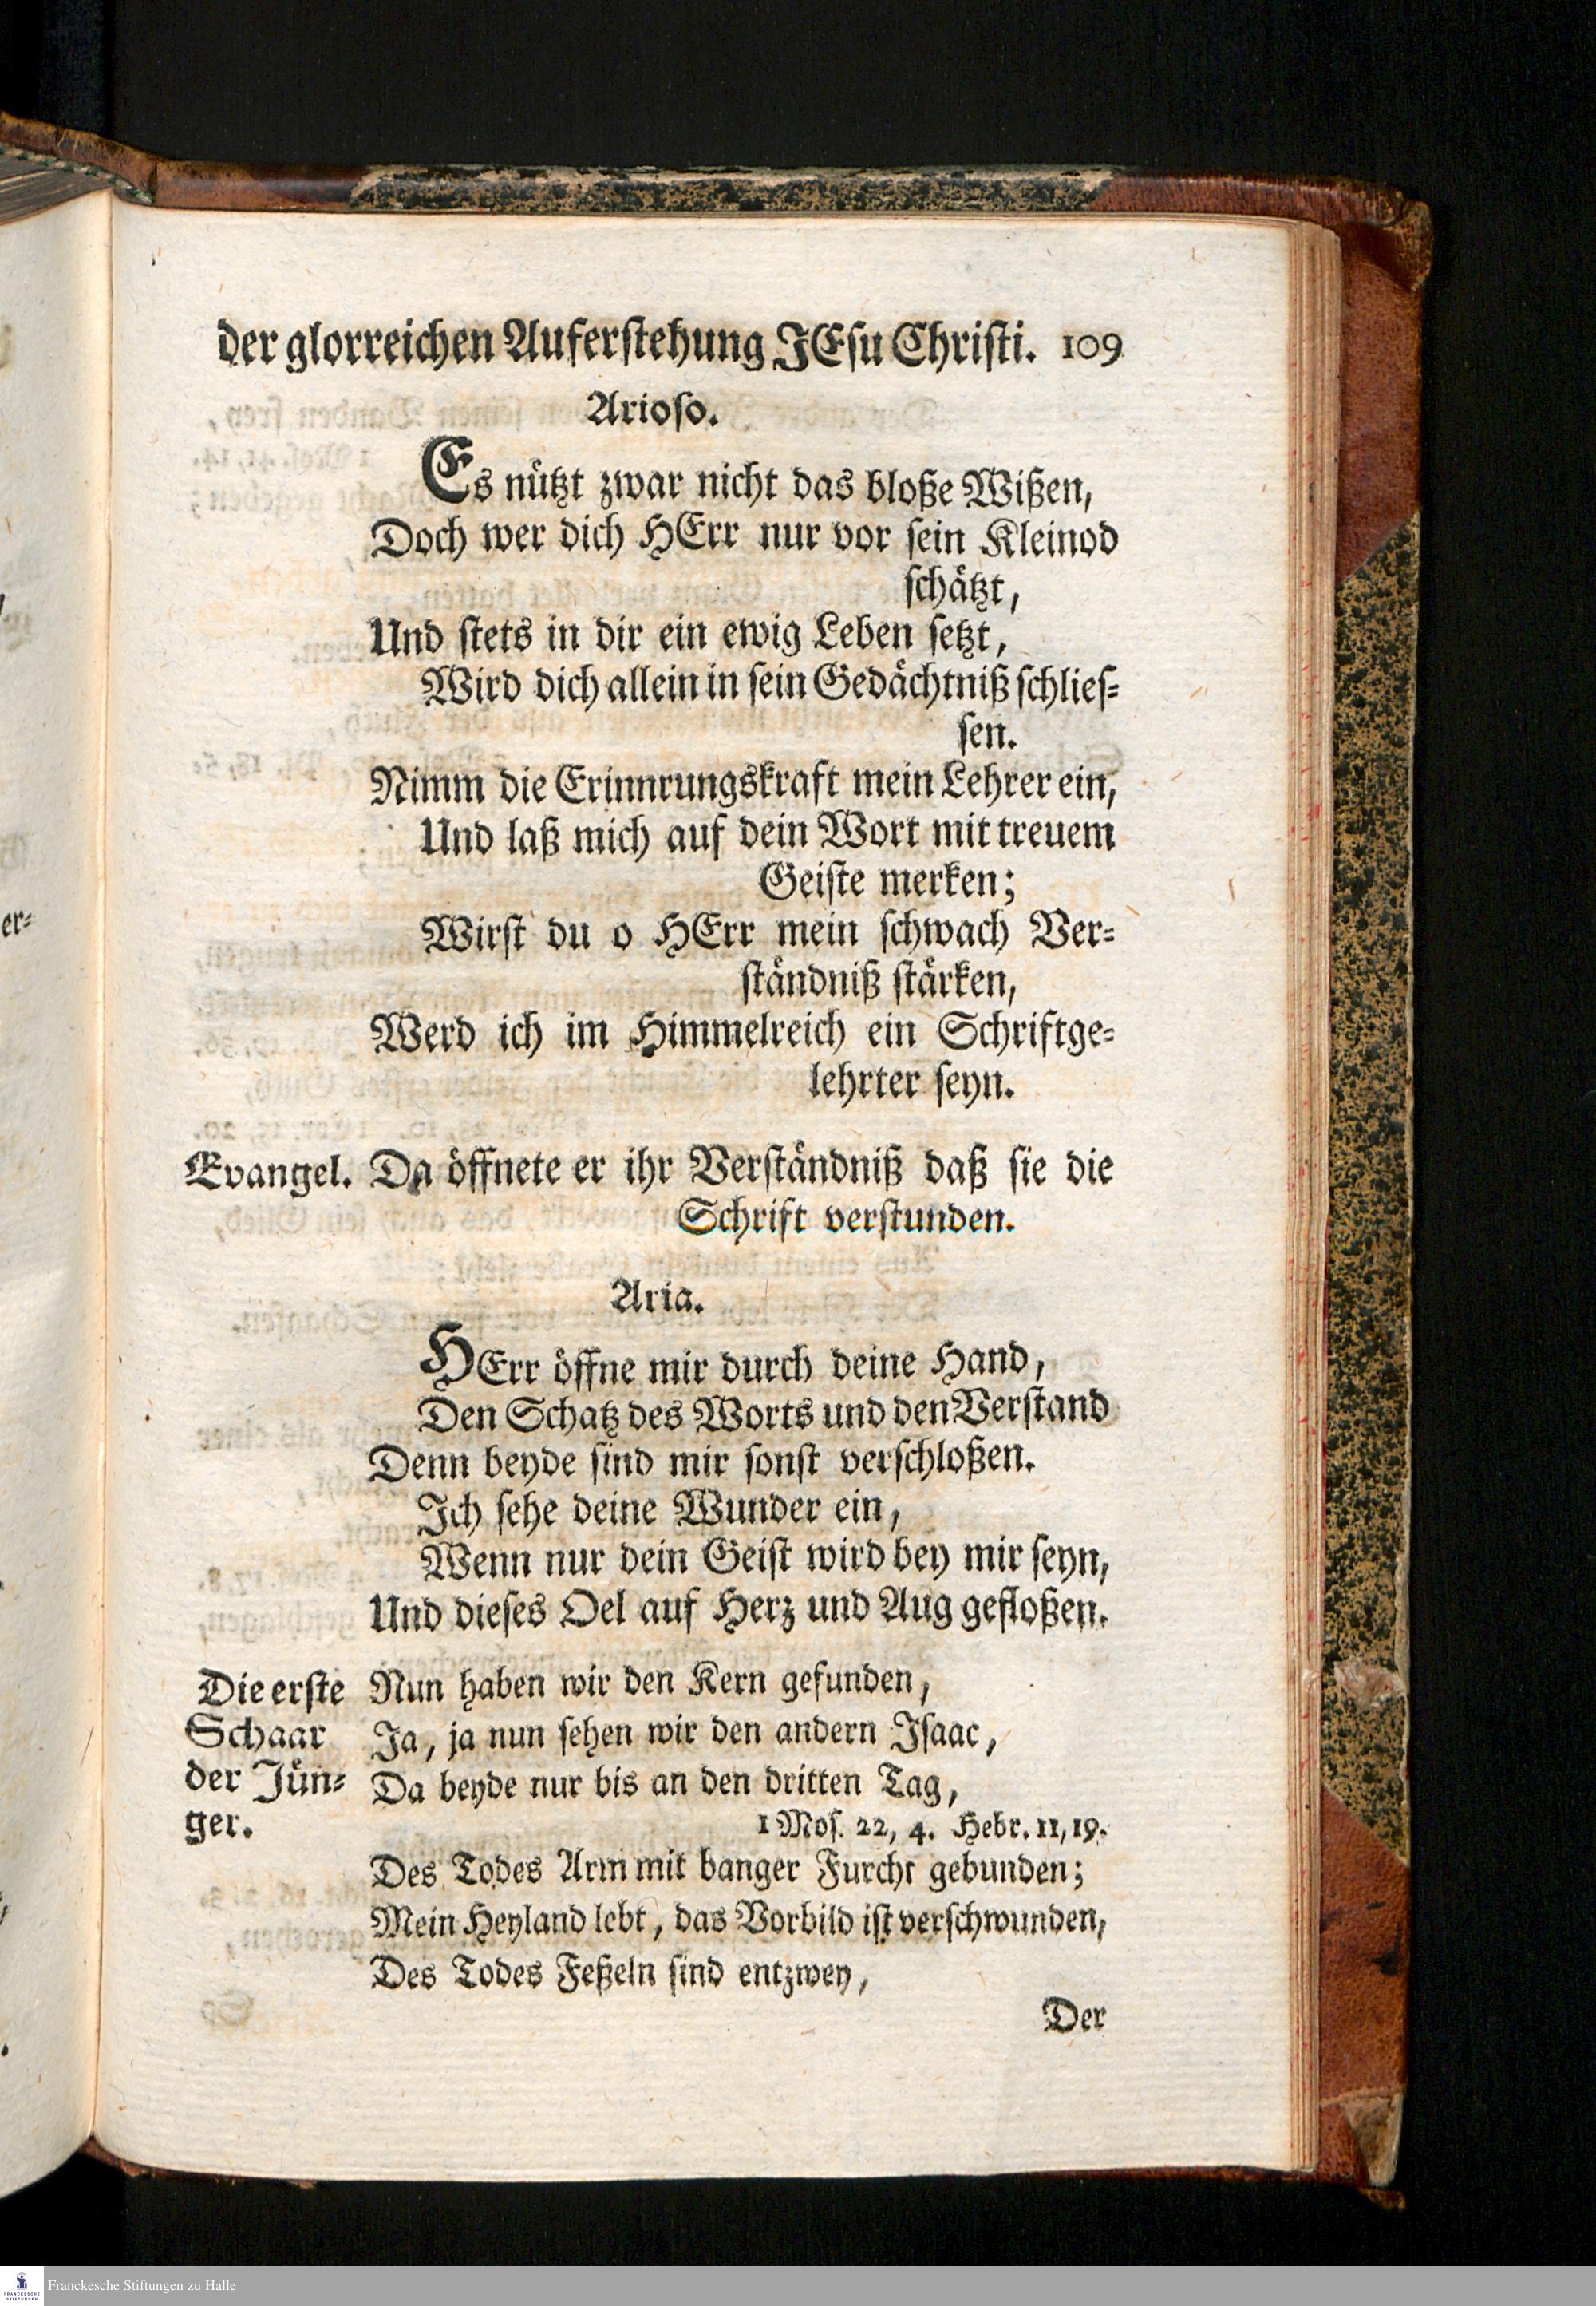 der glorreichen Auferstehung JEsu Christi. 109
Arioso.
Es nützt zwar nicht das bloße Wißen,
Doch wer dich HErr nur vor sein Kleinod
schätzt,
Und stets in dir ein ewig Leben setzt,
Wird dich allein in sein Gedächtniß schlies-
sen.
Nimm die Erinnrungskraft mein Lehrer ein,
Und laß mich auf dein Wort mit treuem
Geiste merken;
Wirst du o HErr mein schwach Ver-
ständniß stärken,
Werd ich im Himmelreich ein Schriftge-
lehrter seyn.
Evangel. Da öffnete er ihr Verständniß daß sie die
Schrift verstunden.
Aria.
HErr öffne mir durch deine Hand,
Den Schatz des Worts und den Verstand
Denn beyde sind mir sonst verschloßen.
Ich sehe deine Wunder ein,
Wenn nur dein Geist wird bey mir seyn,
Und dieses Oel auf Herz und Aug gefloßen.
Die erste Nun haben wir den Kern gefunden,
Schaar Ja, ja nun sehen wir den andern Isaac,
der Jün- Da beyde nur bis an den dritten Tag,
ger. 1 Mos. 22, 4. Hebr. 11, 19.
Des Todes Arm mit banger Furcht gebunden;
Mein Heyland lebt, das Vorbild ist verschwunden,
Des Todes Feßeln sind entzwey,
Der
er-
Franckesche Stiftungen zu Halle